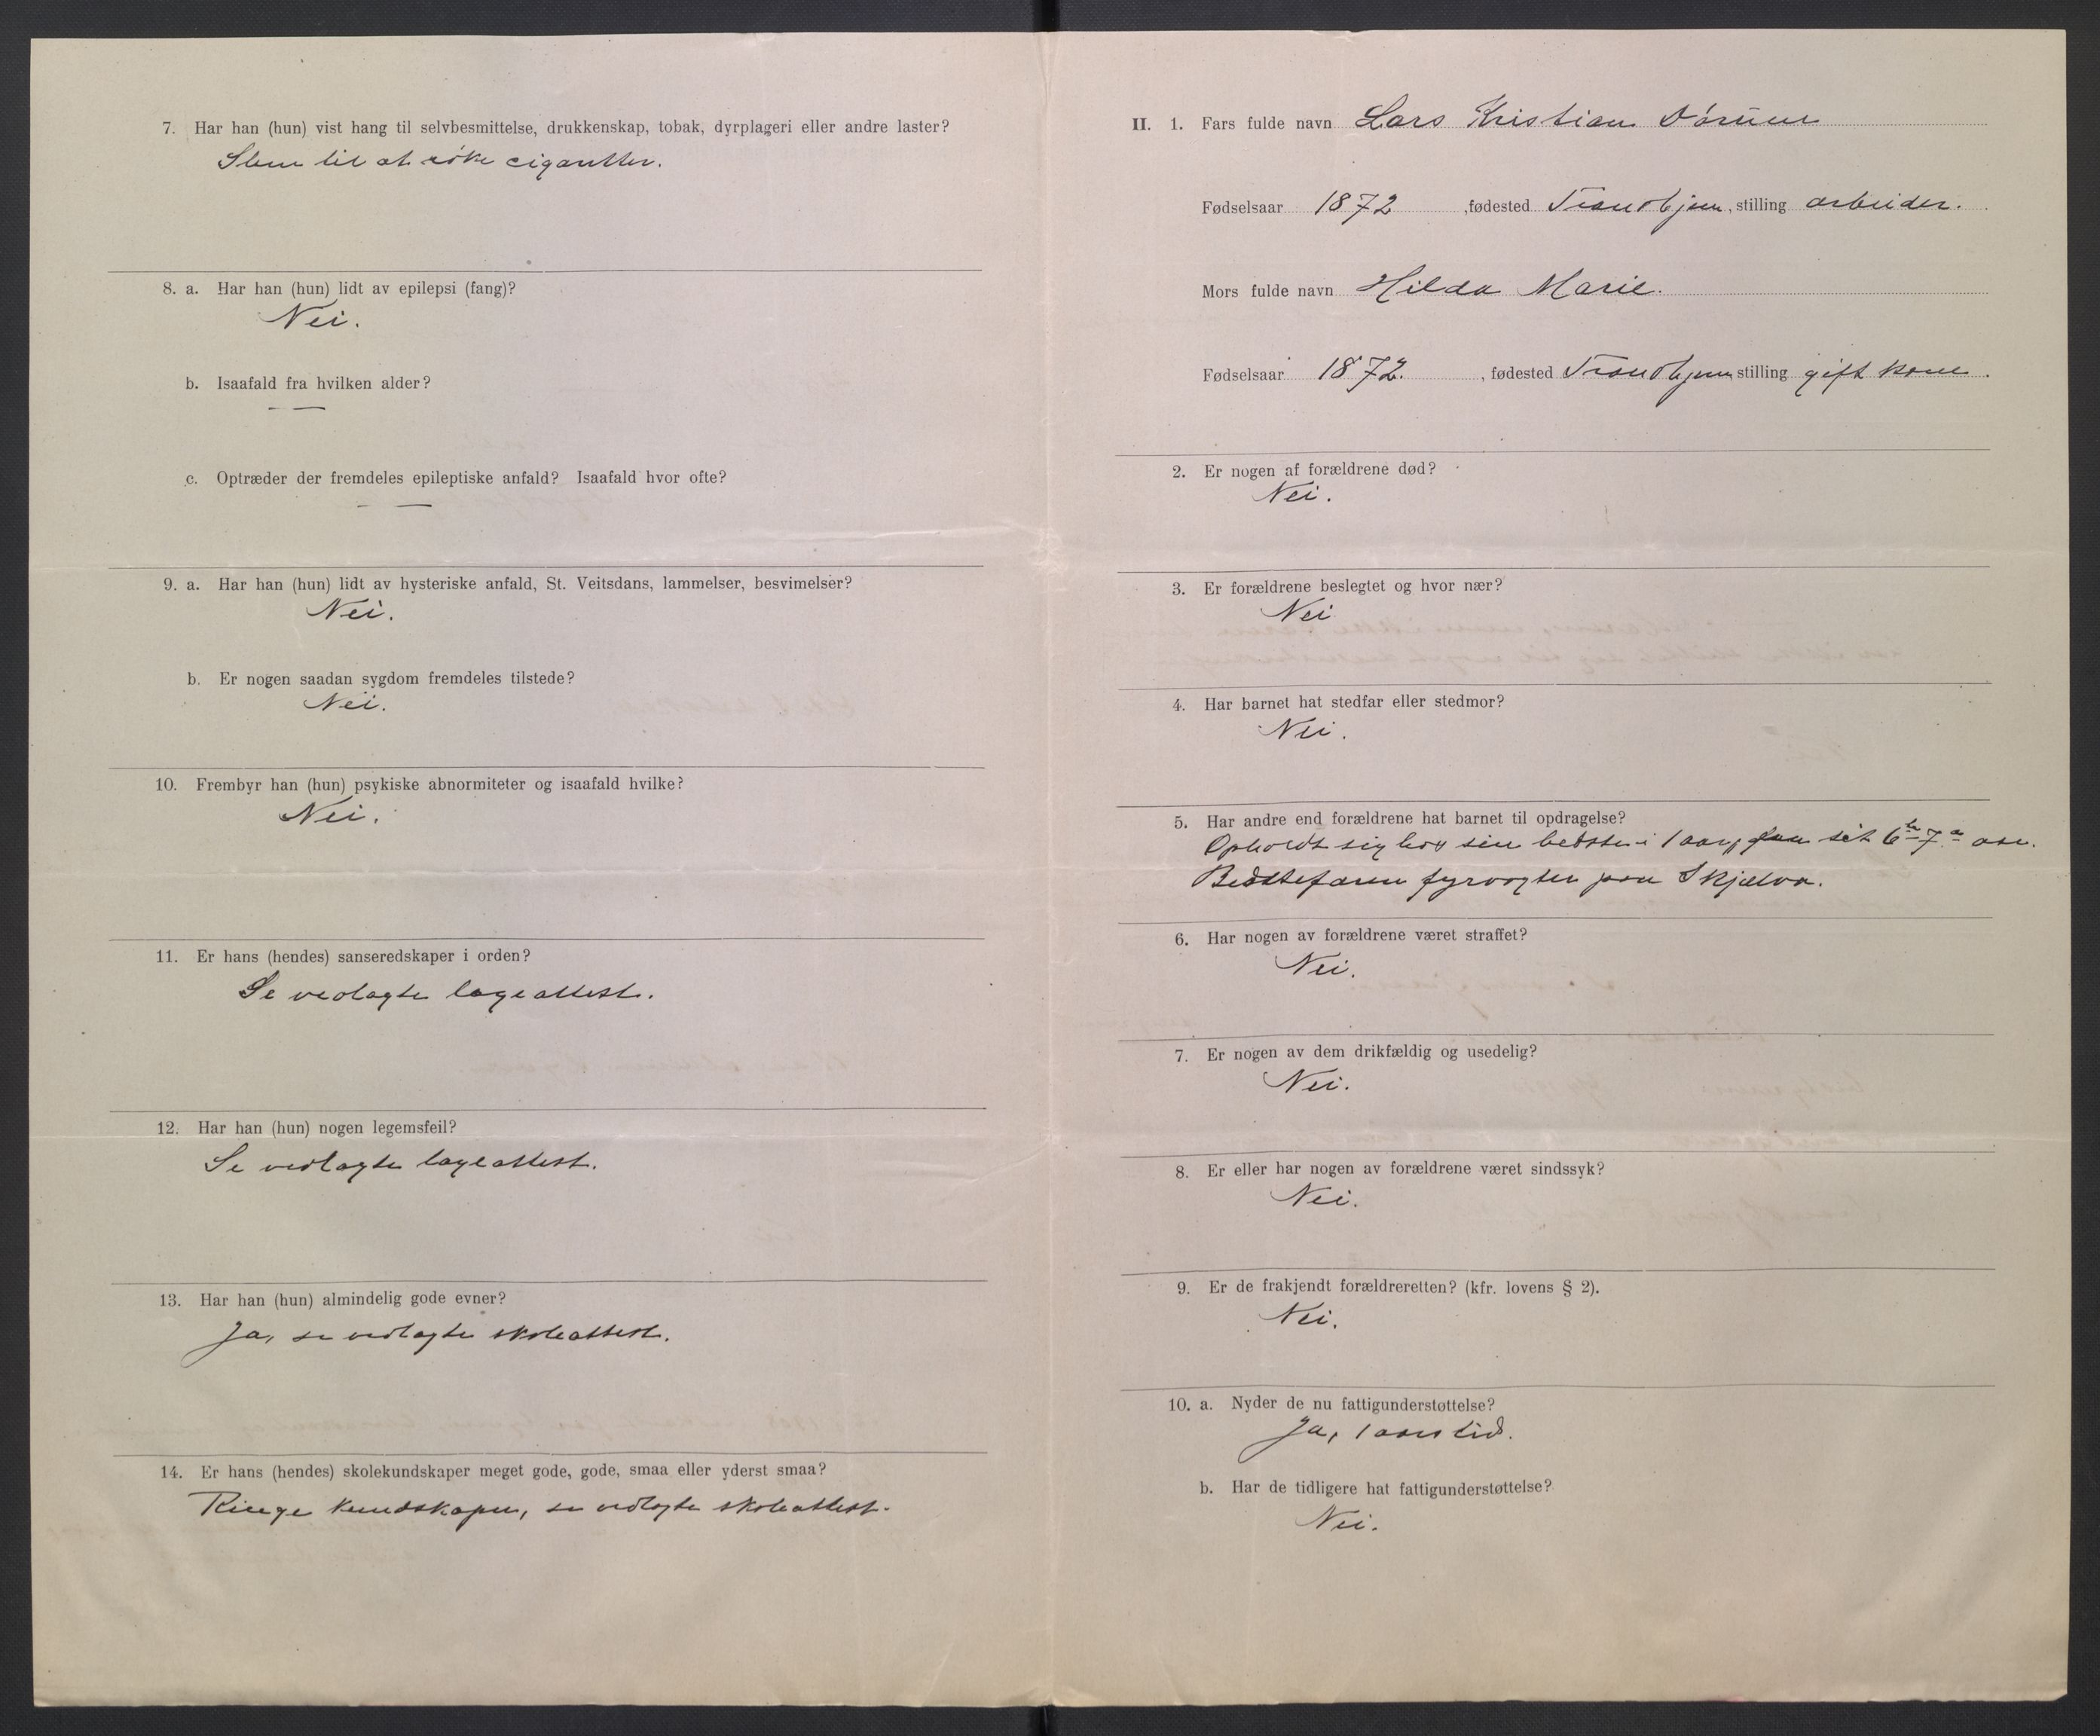 7. Har han (hun) vist hang til selvbesmittelse, drukkenskap, tobak, dyrplageri eller andre laster?
Slem til at røke cigaretter.
8. a. Har han (hun) lidt av epilepsi (fang)?
Nei.
b. Isaafald fra hvilken alder?
— —
c. Optræder der fremdeles epileptiske anfald? Isaafald hvor ofte?
— —
9. a. Har han (hun) lidt av hysteriske anfald, St. Veitsdans, lammelser, besvimelser?
Nei.
b. Er nogen saadan sygdom fremdeles tilstede?
Nei.
10. Frembyr han (hun) psykiske abnormiteter og isaafald hvilke?
Nei.
11. Er hans (hendes) sanseredskaper i orden?
Se vedlagte lægeattest.
12. Har han (hun) nogen legemsfeil?
Se vedlagte lægeattest.
13. Har han (hun) almindelig gode evner?
Ja, se vedlagte skoleattest.
14. Er hans (hendes) skolekundskaper meget gode, gode, smaa eller yderst smaa?
Ringe kundskaper, se vedlagte skoleattest.
II. 1. Fars fulde navn Lars Kristian
Fødselsaar 1872, fødested Trondhjem, stilling arbeider.
Mors fulde navn Hilda Marie.
Fødselsaar 1872., fødested Trondhjem stilling gift kone.
2. Er nogen af forældrene død?
Nei.
3. Er forældrene beslegtet og hvor nær?
Nei
4. Har barnet hat stedfar eller stedmor?
Nei.
5. Har andre end forældrene hat barnet til opdragelse?
Opholdt sig hos sin bedstef. i 1 aar, sit 6te-7de aar.
Bedstefaren fyrvogter paa Skjælva.
6. Har nogen av forældrene været straffet?
Nei.
7. Er nogen av dem drikfældig og usedelig?
Nei.
8. Er eller har nogen av forældrene været sindssyk?
Nei.
9. Er de frakjendt forældreretten? (kfr. lovens § 2).
Nei.
10. a. Nyder de nu fattigunderstøttelse?
Ja, 1 aars tid.
b. Har de tidligere hat fattigunderstøttelse?
Nei.